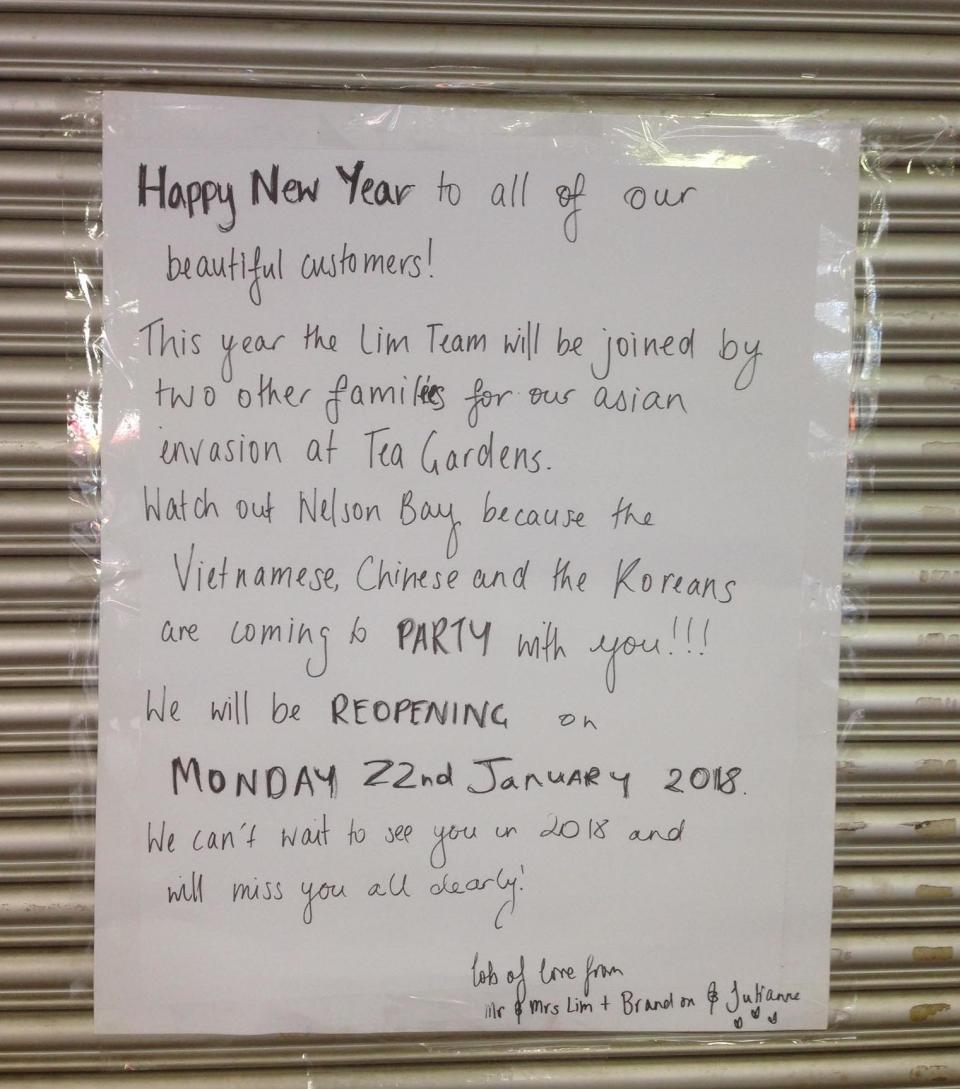 Happy New Year to all of our
beautiful customers!
This year the Lim Team will be joined by
two other families for our asian
invasion at Tea Gardens.
Watch out Nelson Bay because the
Vietnamese, Chinese and the Koreans
are coming to PARTY with you!!!
We will be REOPENING on
MONDAY 22nd JANUARY 2018.
We can't wait to see you in 2018 and
will miss you all dearly!
lots of love from
Mr & Mrs Lim + Brandon & Julianne